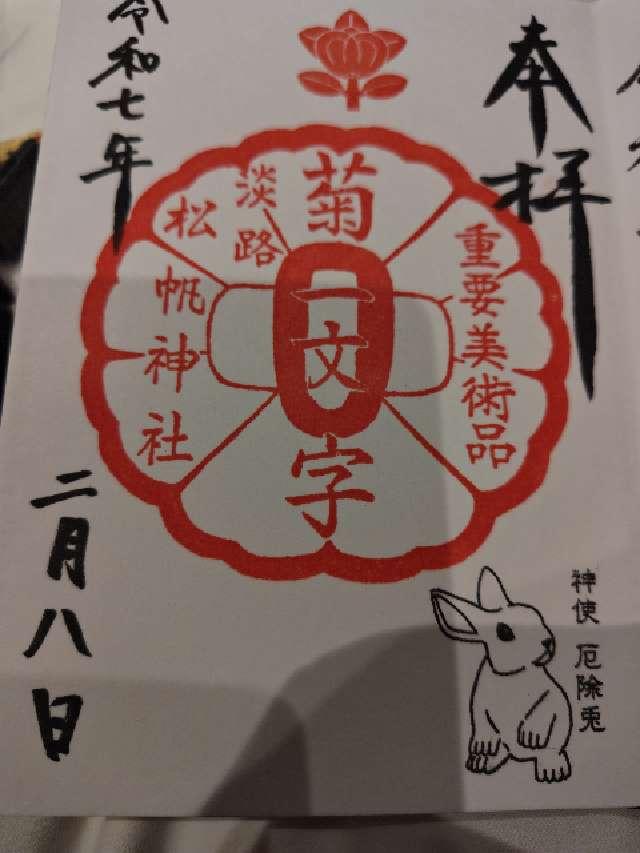 奉拝
重要美術品
菊一文字
淡路
松帆神社
令和七年
二月八日
神使 厄除兎